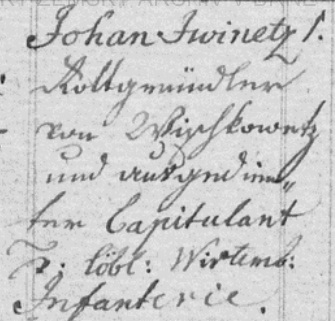 Johan Iwinetz /.
Rottgmündler
von Wischkowetz
und ausgedien„
ter Capitulant
löbl: Wirtemb:
Infanterie.